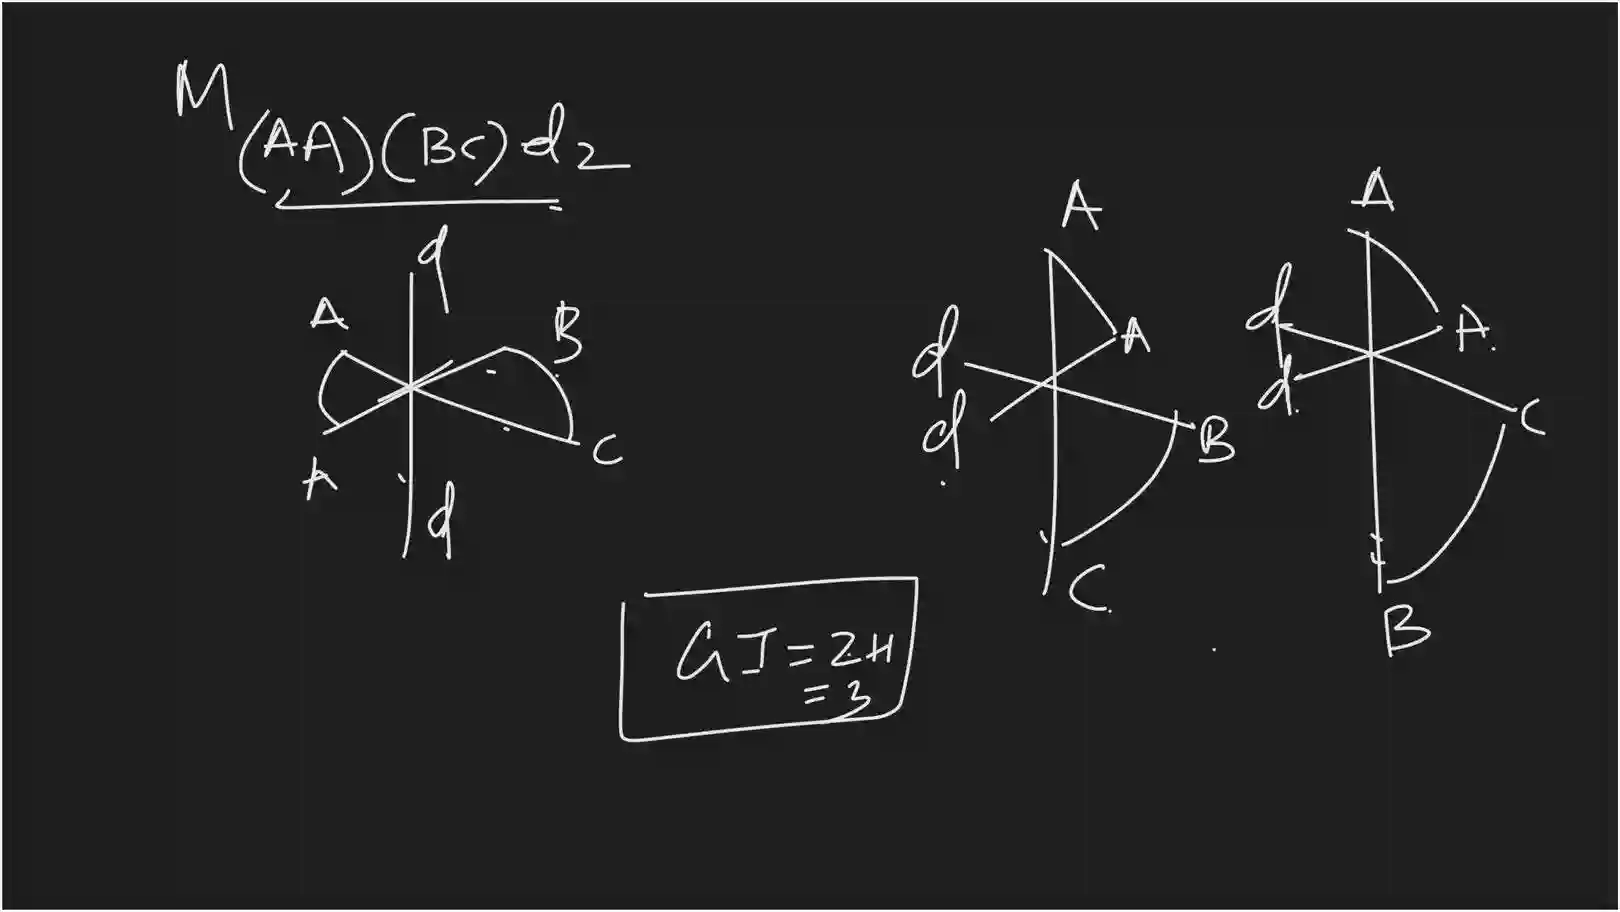 M(AA)(BC)d2
d
A
B
A
C
d
A
A
d
d
B
C
A
d
A
d
C
B
GI = 2+1
= 3